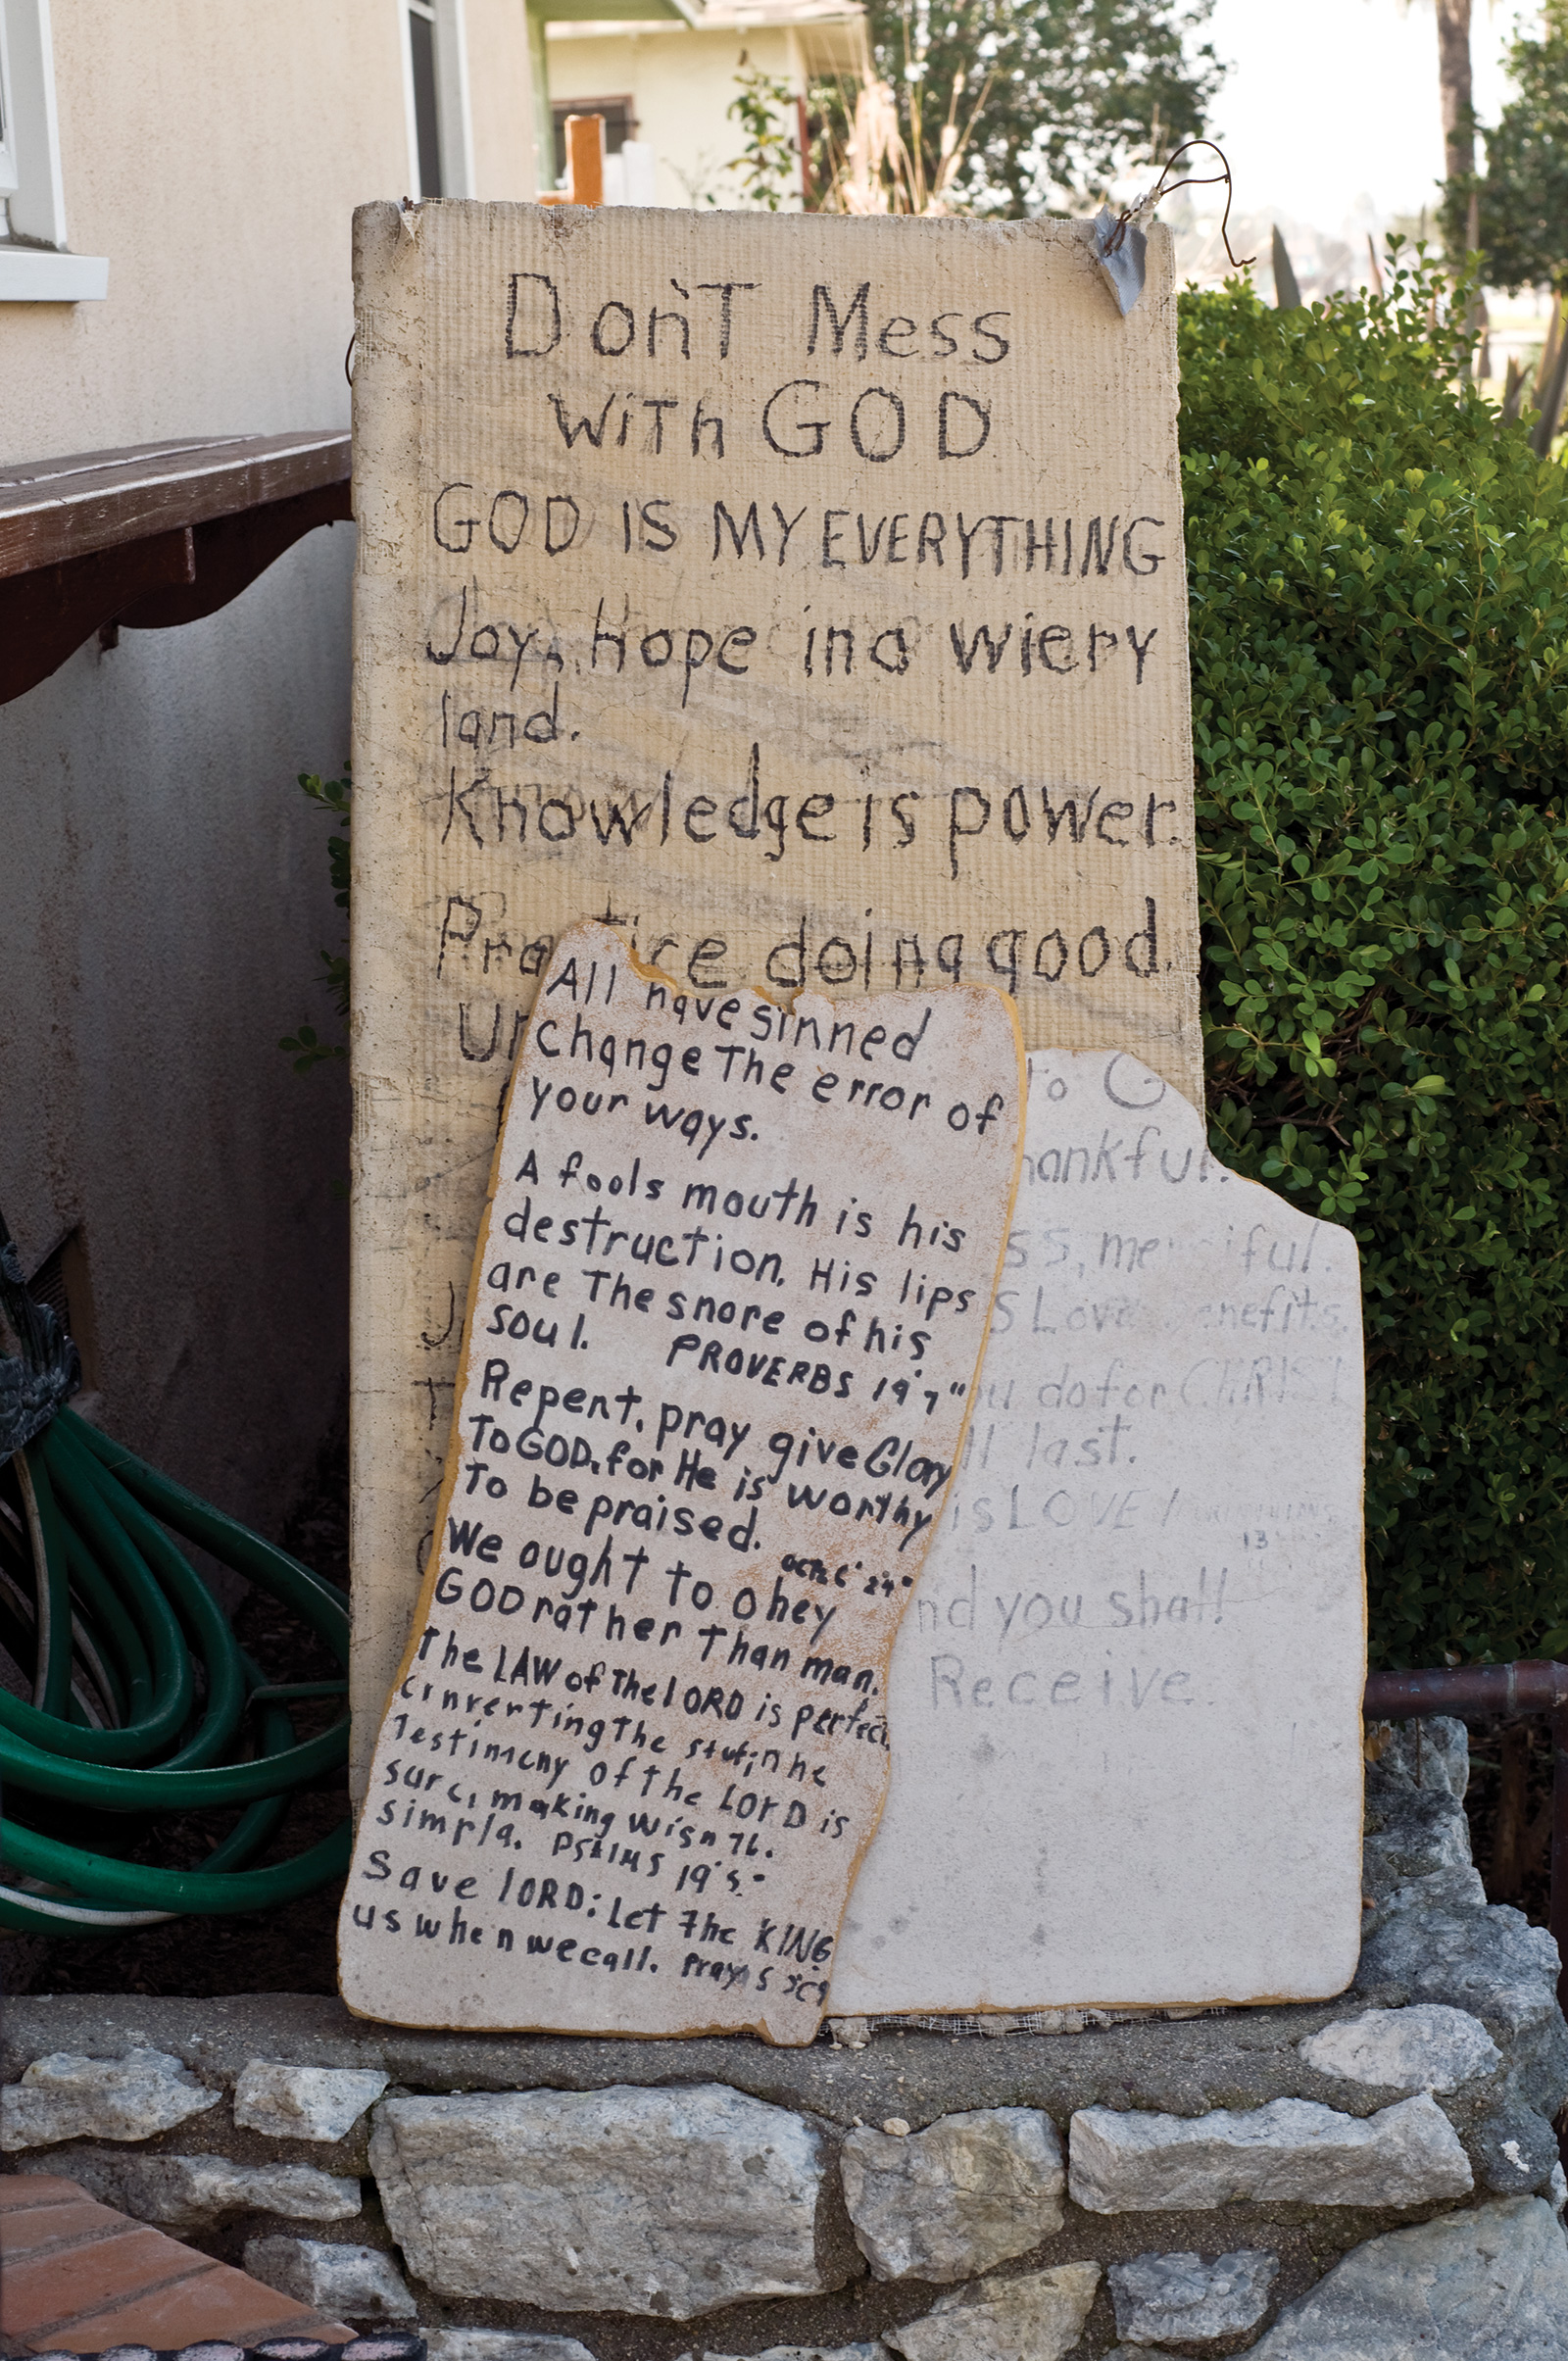 Don'T Mess
with GOD
GOD IS MY EVERYTHING
Joy, Hope in a wiery
land.
Knowledge is power.
Practice doing good.
All have sinned
Change The error of
your ways.
A fools mouth is his
destruction. His lips
are The snare of his
soul. PROVERBS 19'7"
Repent, pray give Glory
To GOD, for He is worthy
To be praised.
We ought to obey
GOD rather Than man.
The LAW of The lORD is perfect,
converting the
Testimony of the LOrD is
sure, making
simple. PSALMS 19
Save lORD: Let The KING
us when we call.
to G
hankful.
ss, merciful.
S Love enefits.
u do for CHRIST
ll last.
is LOVE /
13
nd you shall
Receive.